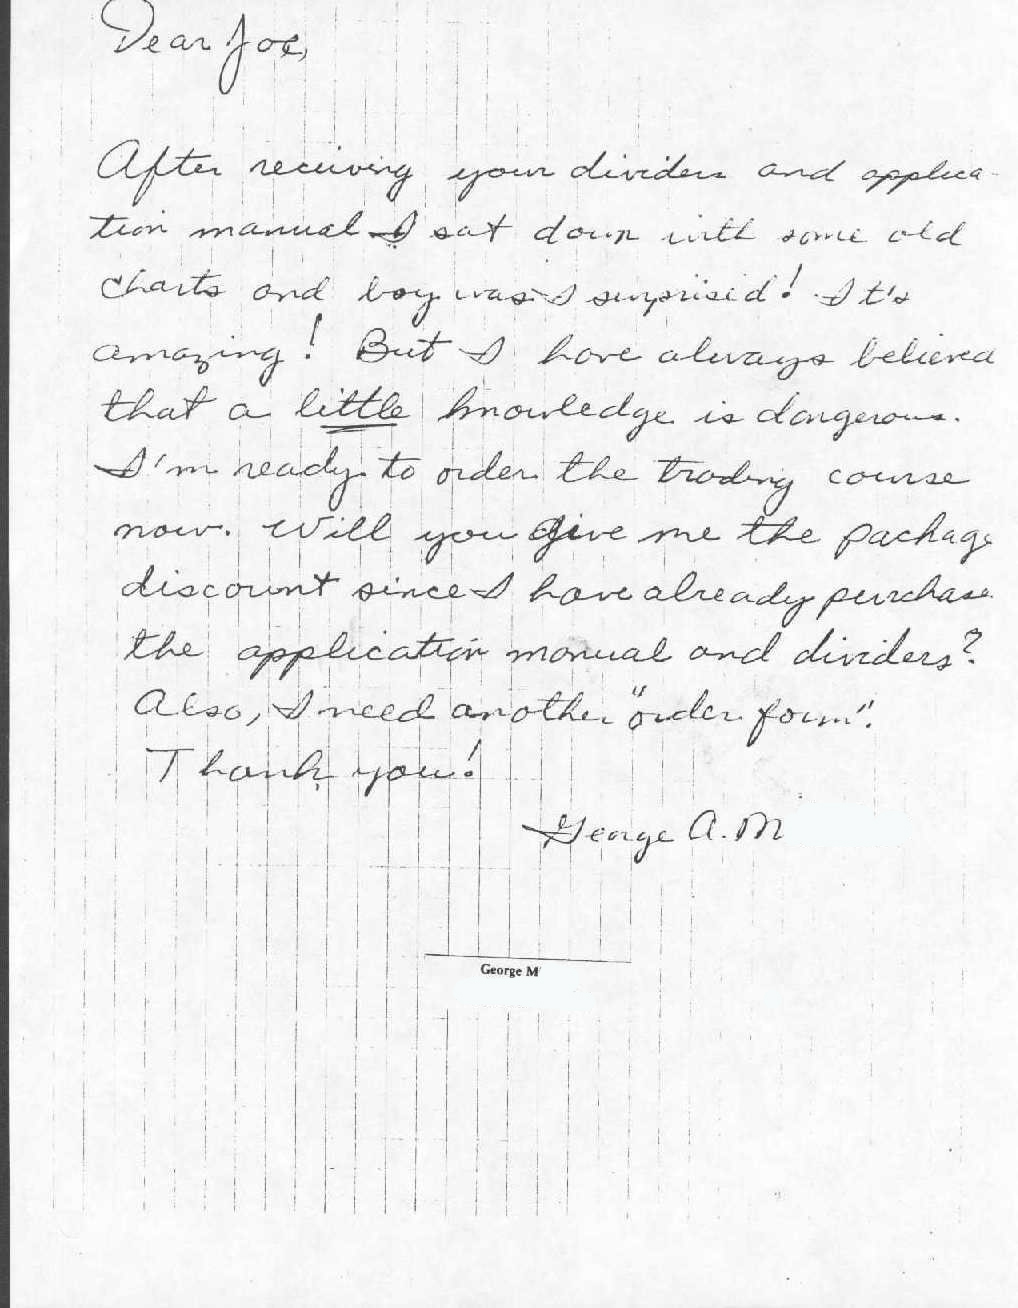 Dear Joe,
After receiving your dividers and applica-
tion manual I sat down with some old
charts and boy was I surprised! It's
amazing! But I have always believed
that a little knowledge is dangerous.
I'm ready to order the trading course
now. Will you give me the package
discount since I have already purchase
the application manual and dividers?
Also, I need another "order form".
Thank you!
George A. M
George M